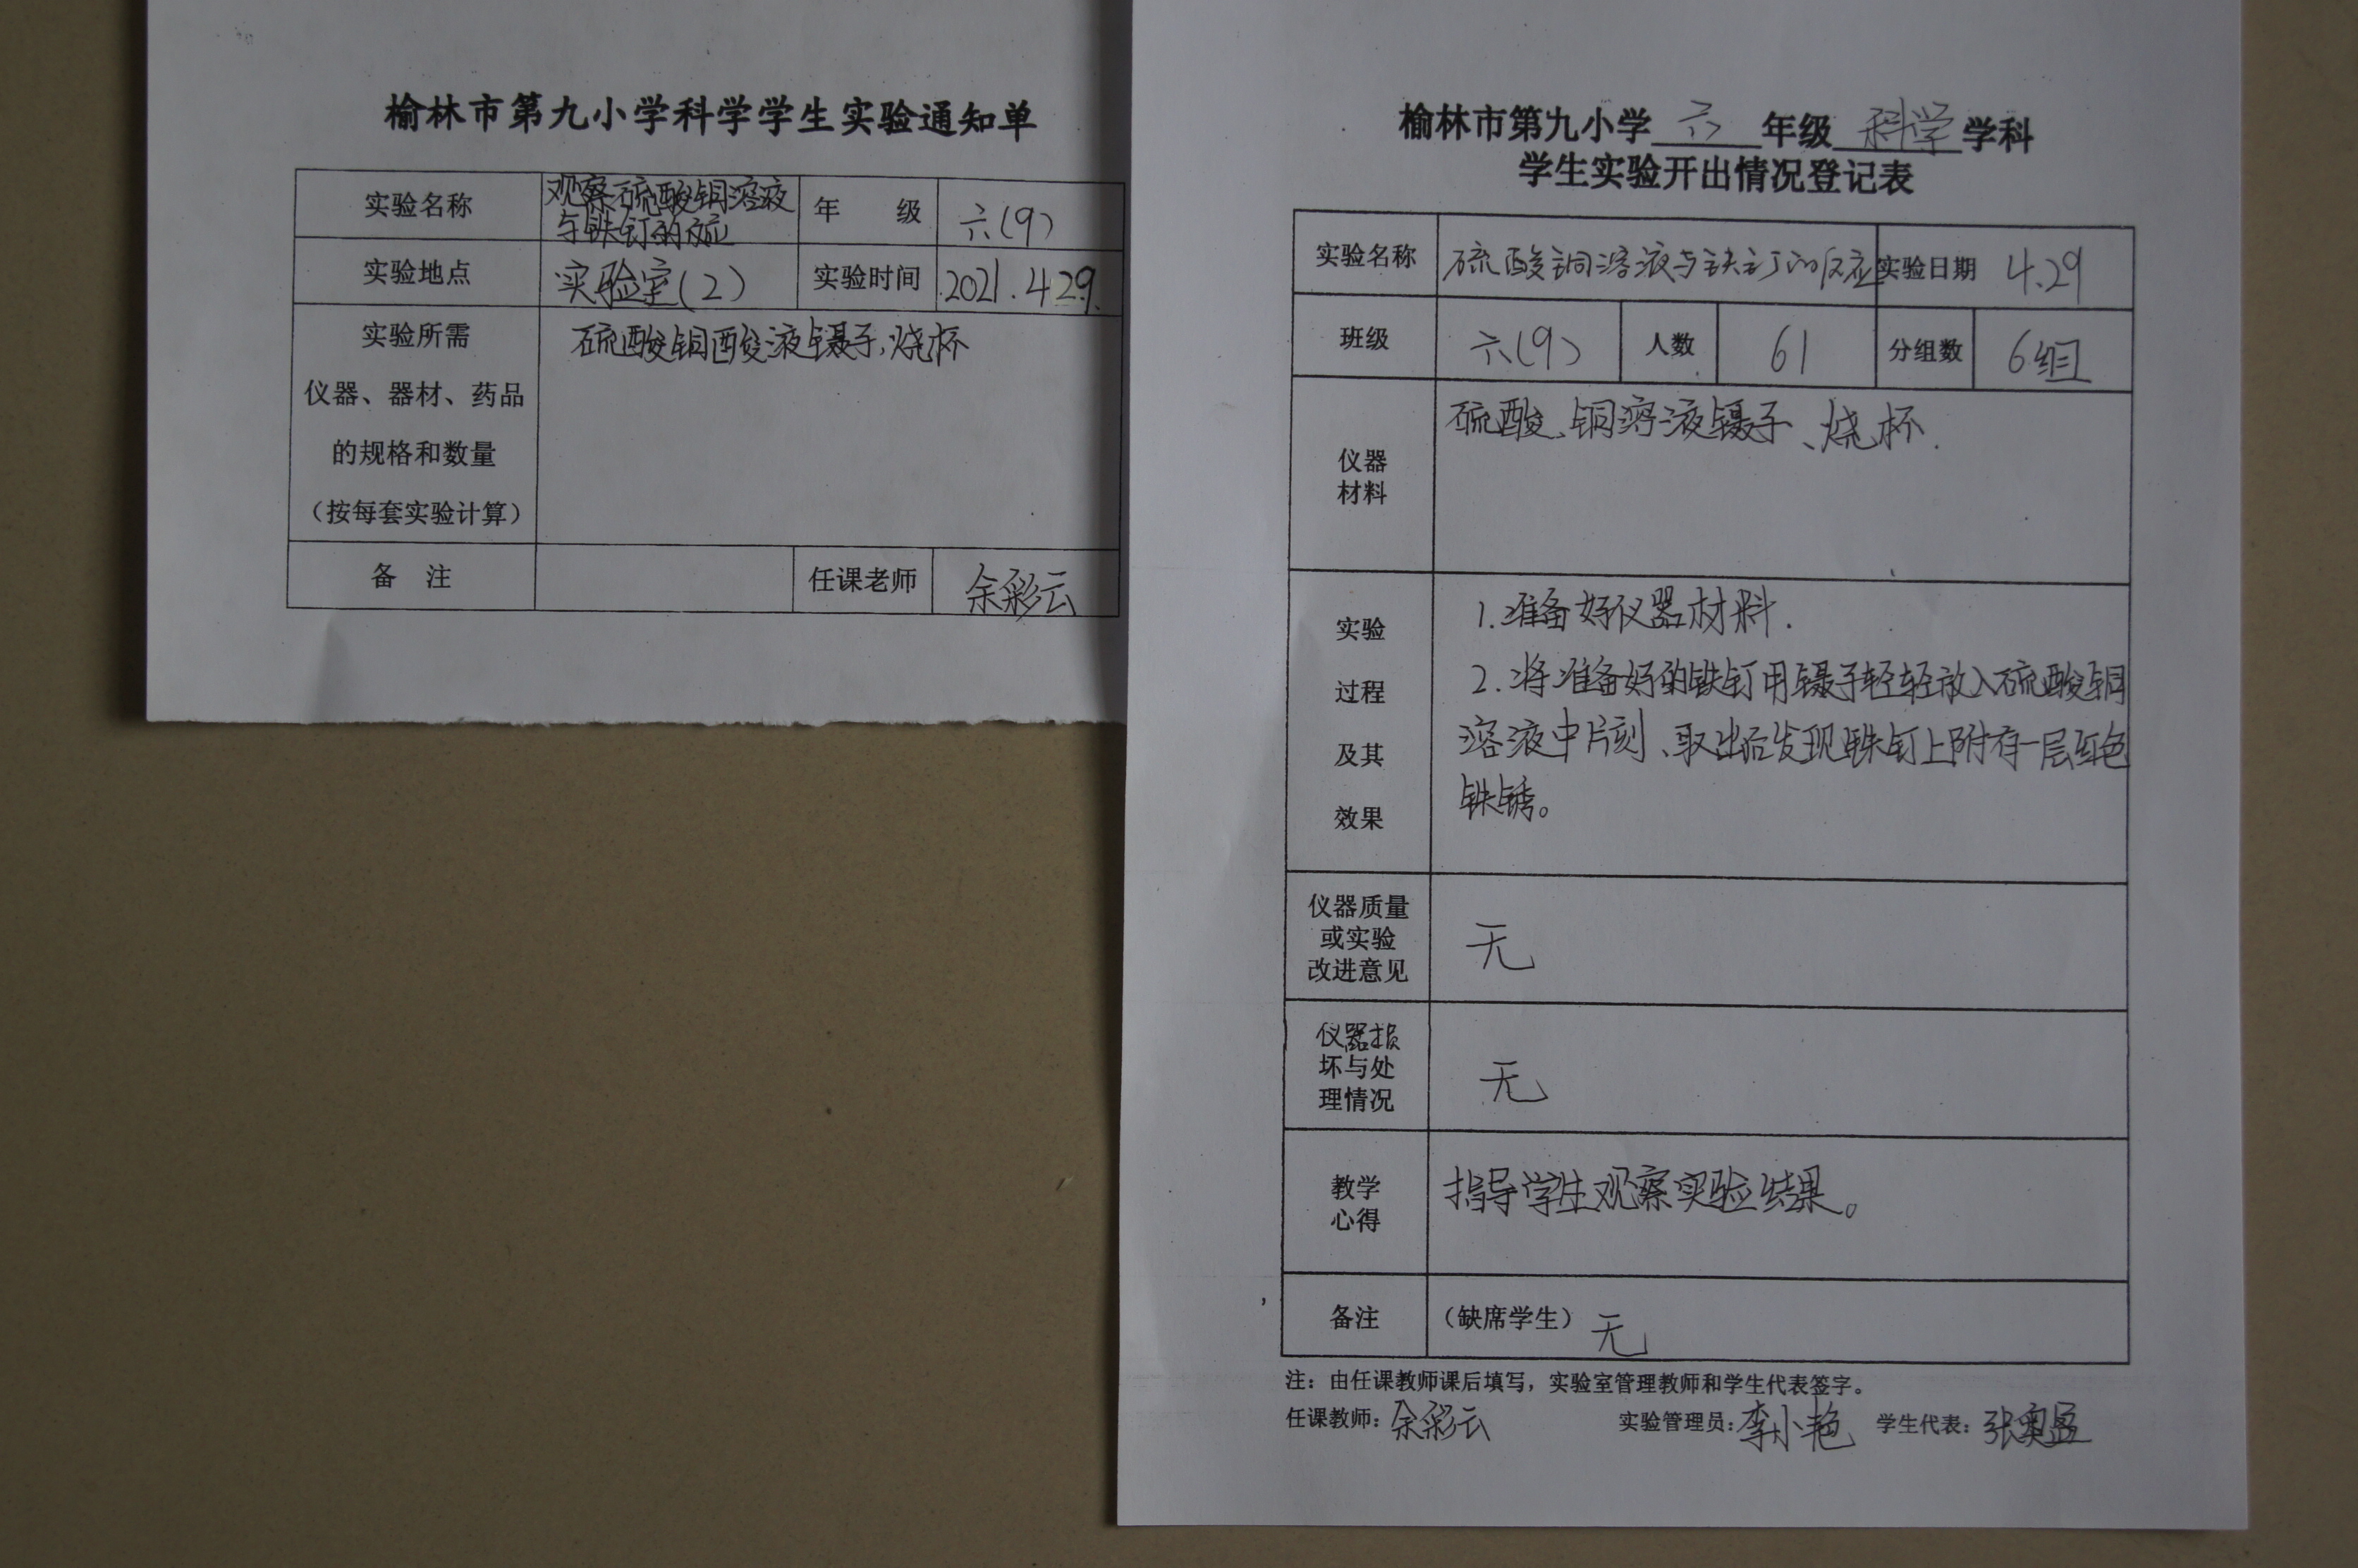 榆林市第九小学科学学生实验通知单
实验名称 观察硫酸铜溶液与铁钉的反应 年 级 六(9)
实验地点 实验室(2) 实验时间 2021.4.29.
实验所需
仪器、器材、药品
的规格和数量
(按每套实验计算)
硫酸铜酸液镊子、烧杯
备 注 任课老师 余彩云
榆林市第九小学 六 年级 科学 学科
学生实验开出情况登记表
实验名称 硫酸铜溶液与铁钉的反应 实验日期 4.29
班级 六(9) 人数 61 分组数 6组
仪器
材料
硫酸、铜溶液镊子、烧杯.
实验
过程
及其
效果
1.准备好仪器材料.
2.将准备好的铁钉用镊子轻轻放入硫酸铜
溶液中片刻、取出后发现铁钉上附有一层红色
铁锈。
仪器质量
或实验
改进意见
无
仪器损
坏与处
理情况
无
教学
心得
指导学生观察实验结果。
备注 (缺席学生) 无
注:由任课教师课后填写,实验室管理教师和学生代表签字。
任课教师:余彩云 实验管理员:李小艳 学生代表:张奥